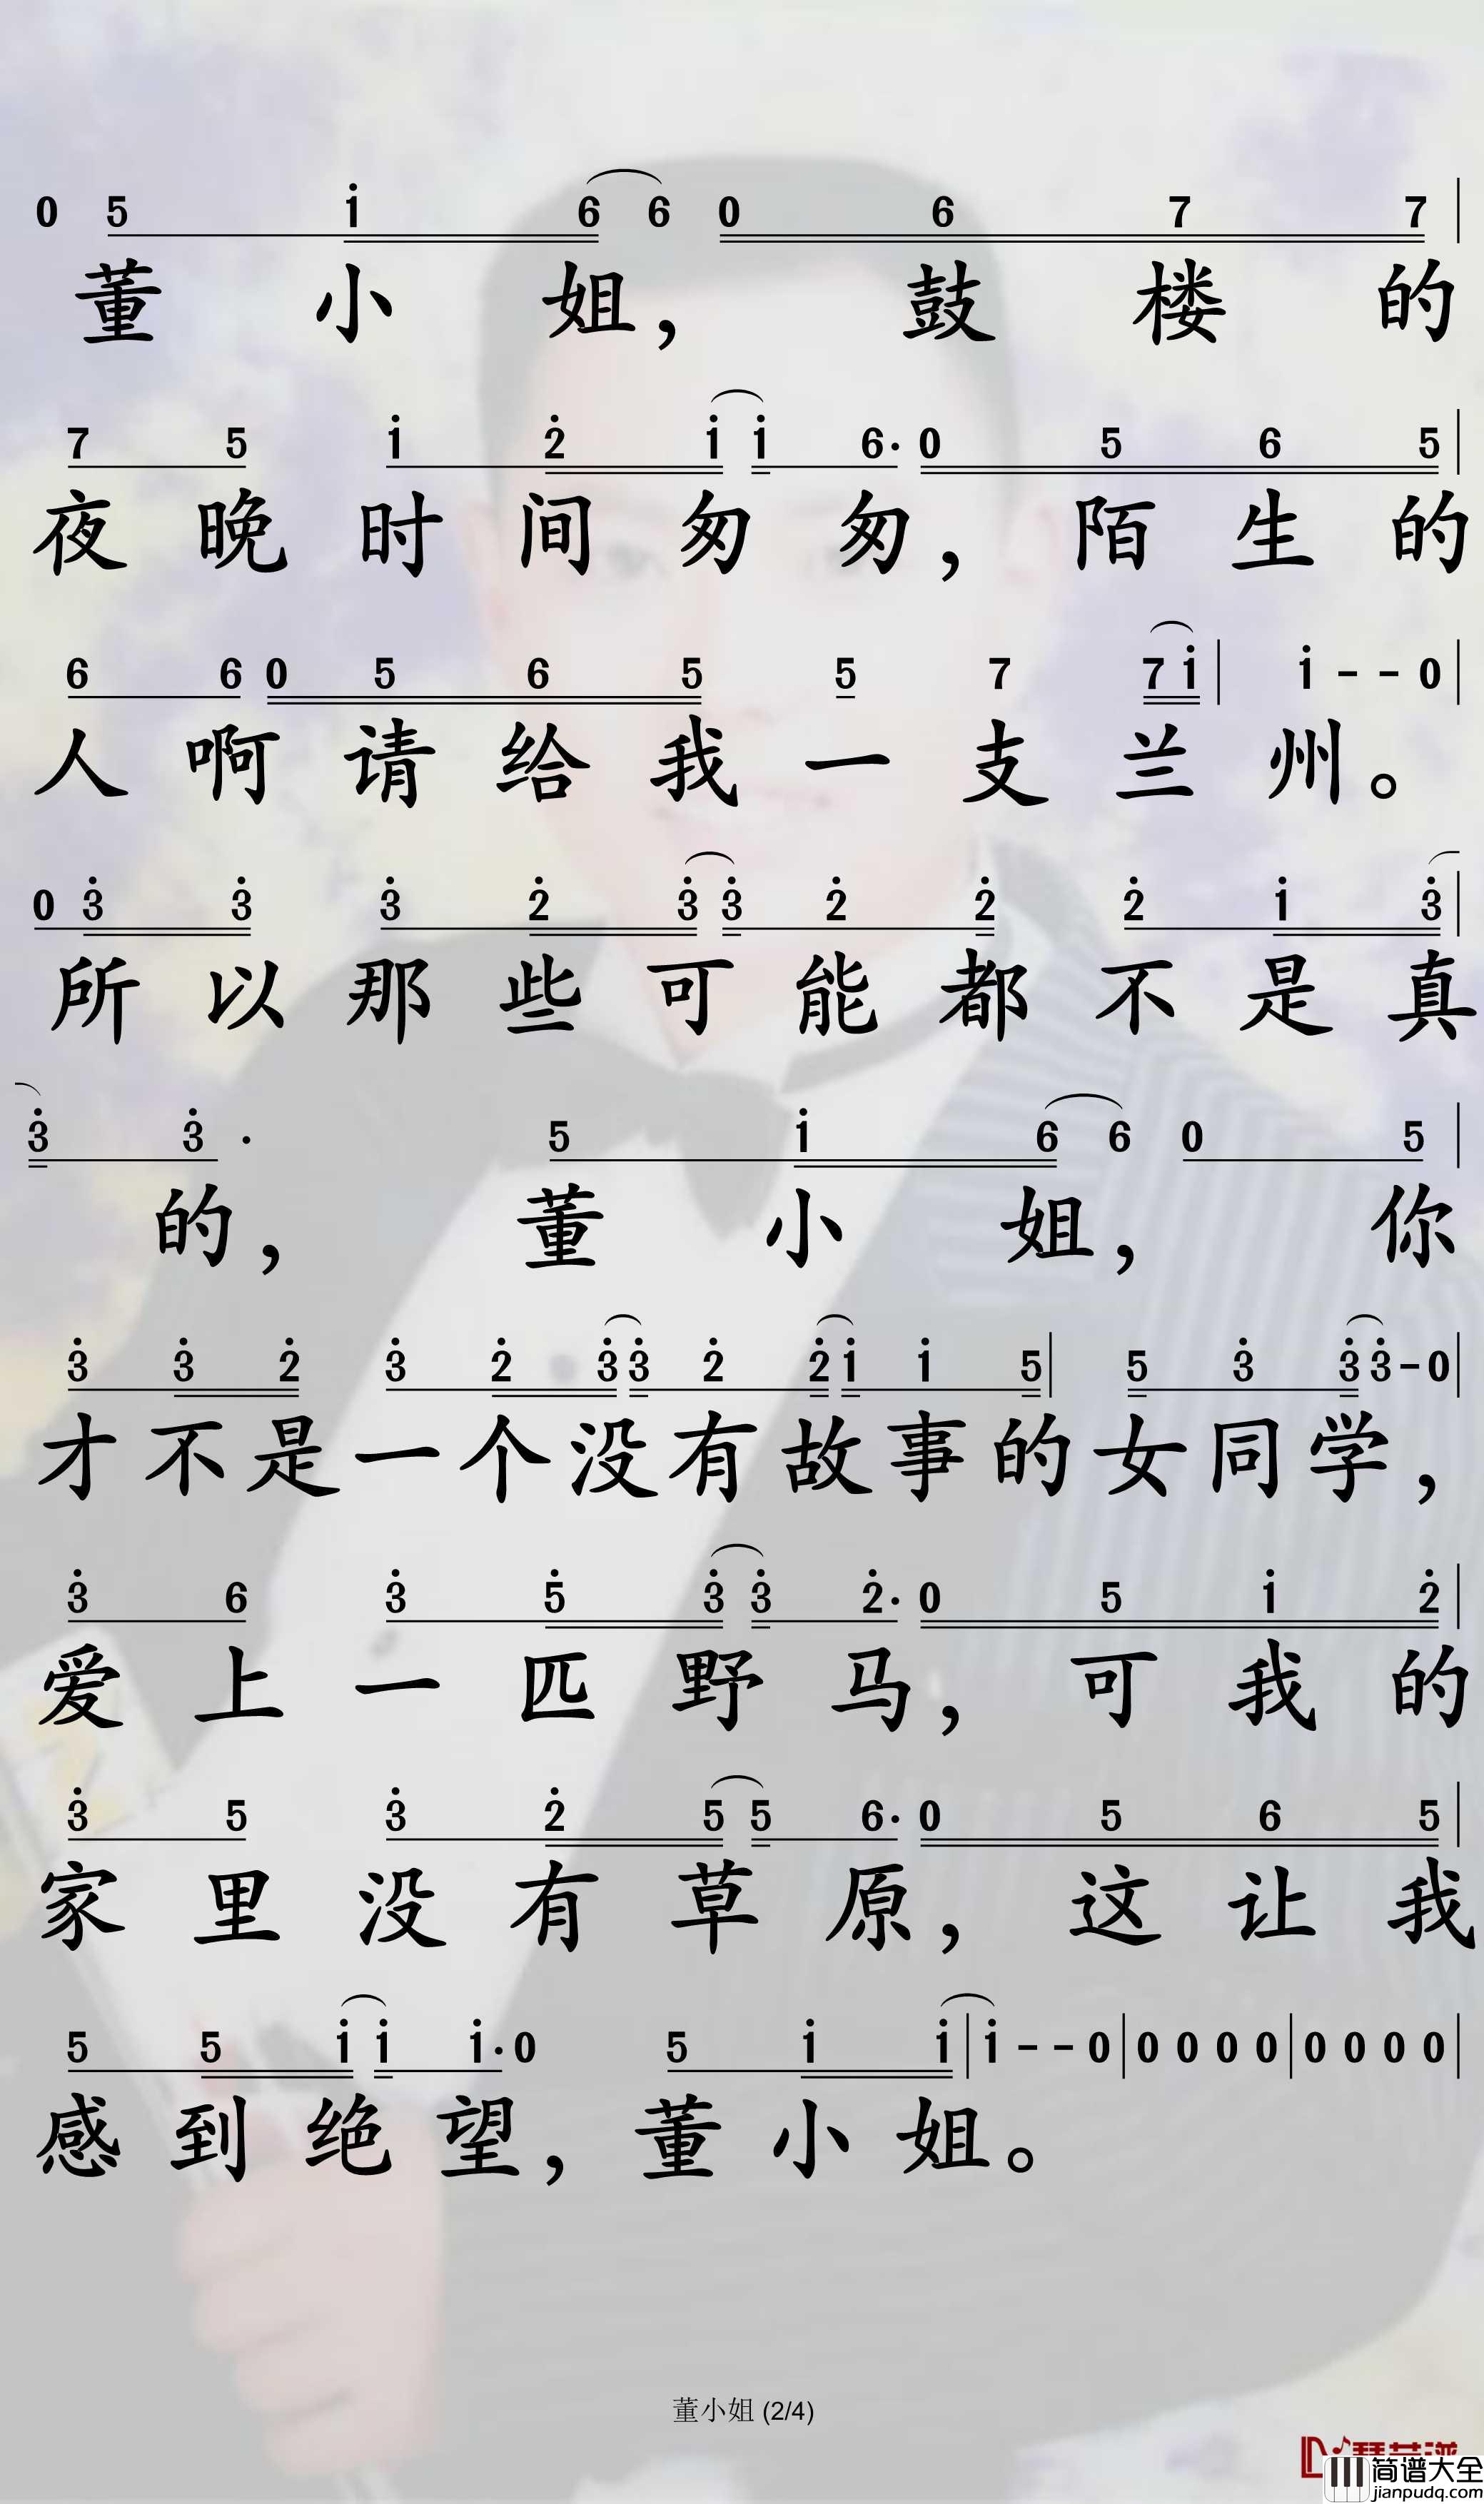 0 5 1 6 6 0 6 7 7
董小姐，鼓楼的
7 5 1 2 1 1 6· 0 5 6 5
夜晚时间匆匆，陌生的
6 6 0 5 6 5 5 7 7 1 | 1 - - 0
人啊请给我一支兰州。
0 3 3 3 2 3 3 2 2 2 1 3
所以那些可能都不是真
3 3· 5 1 6 6 0 5
的，董小姐，你
3 3 2 3 2 3 3 2 2 1 1 5 | 5 3 3 3 - 0
才不是一个没有故事的女同学，
3 6 3 5 3 3 2· 0 5 1 2
爱上一匹野马，可我的
3 5 3 2 5 5 6· 0 5 6 5
家里没有草原，这让我
5 5 1 1 1· 0 5 1 1 | 1 - - 0 | 0 0 0 0 | 0 0 0 0
感到绝望，董小姐。
董小姐 (2/4)
简谱大全
jianpudq.com